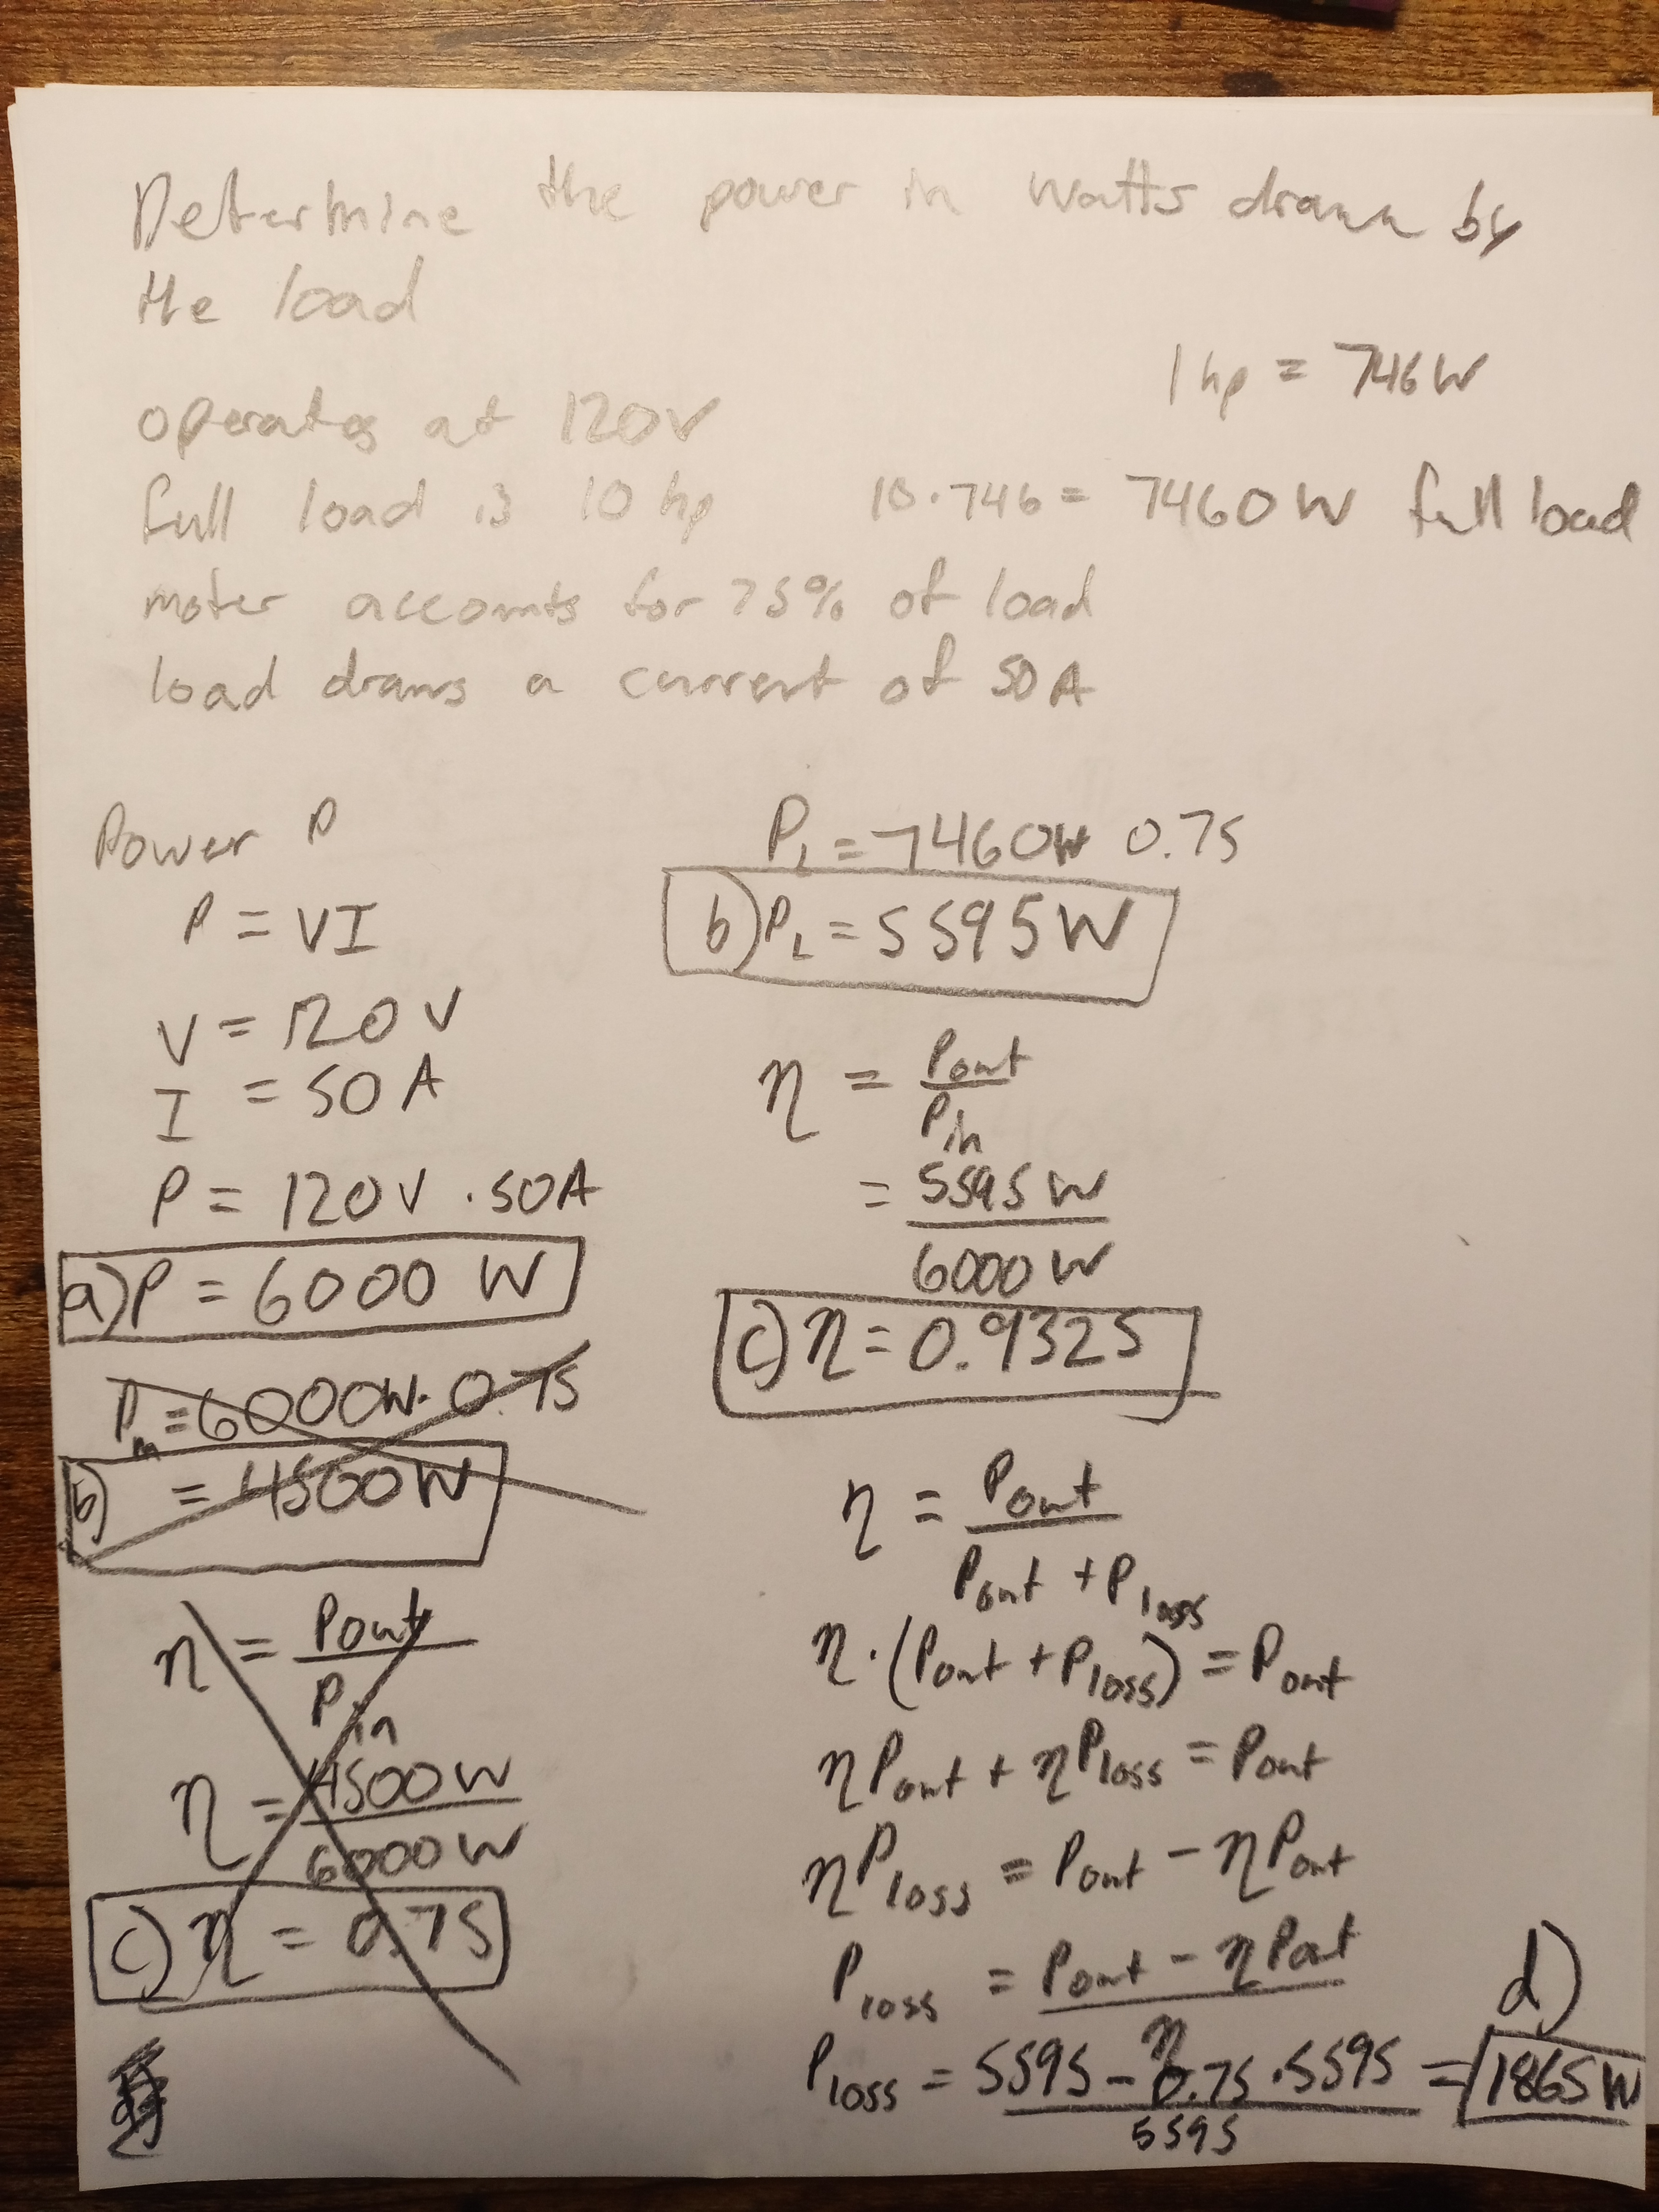 Determine the power in watts drawn by
the load
1 hp = 746W
operates at 120V
full load is 10 hp 10·746 = 7460W full load
moter accounts for 75% of load
load draws a current of 50A
Power P
P = VI
V = 120V
I = 50A
P = 120V · 50A
a) P = 6000 W
Pm = 6000W · 0.75
b) = 4500W
η = Pout / Pin
η = 4500W / 6000W
c) η = 0.75
PL = 7460W 0.75
b) PL = 5595W
η = Pout / Pin
= 5595W / 6000W
c) η = 0.9325
η = Pout / Pout + Ploss
η·(Pout + Ploss) = Pout
ηPout + ηPloss = Pout
ηPloss = Pout - ηPout
Ploss = Pout - ηPout / η
d)
Ploss = 5595 - 0.75 · 5595 / 5595 = 1865W